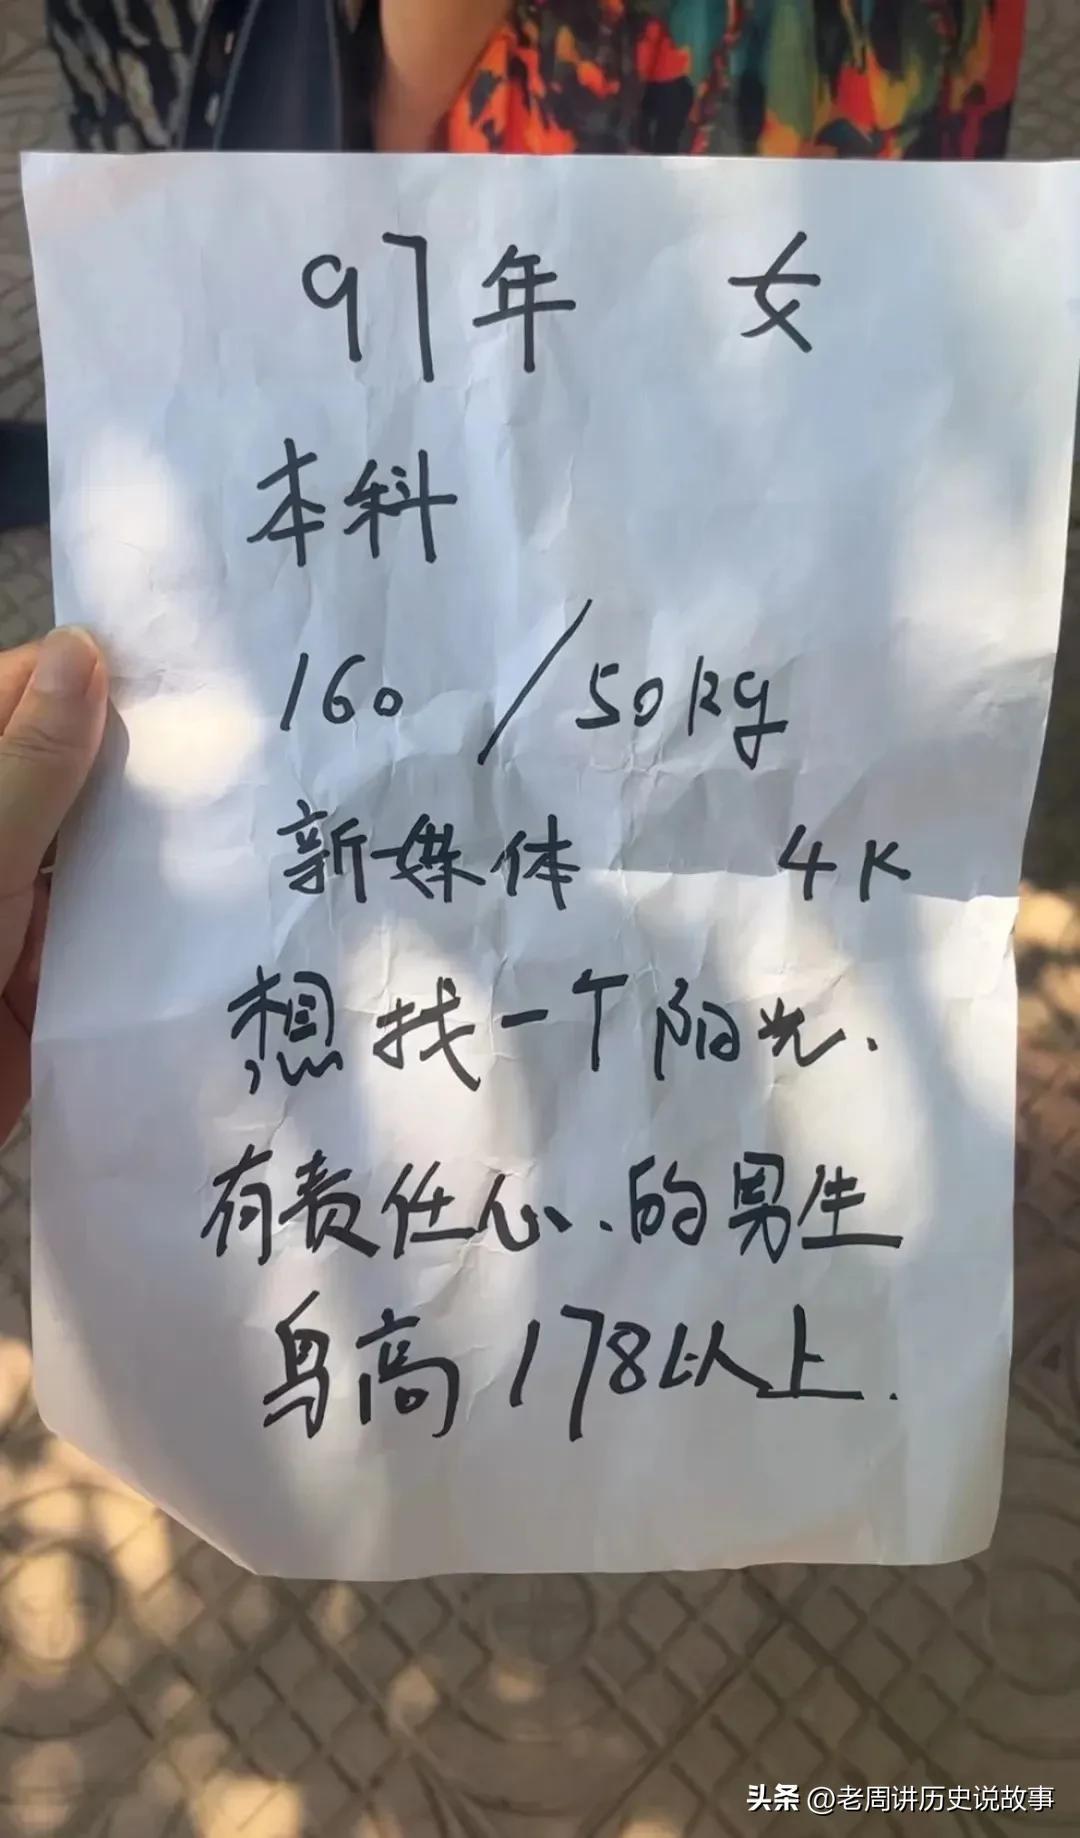 97年 女
本科
160 / 50kg
新媒体 4K
想找一个阳光.
有责任心.的男生
身高178以上.
头条 @老周讲历史说故事